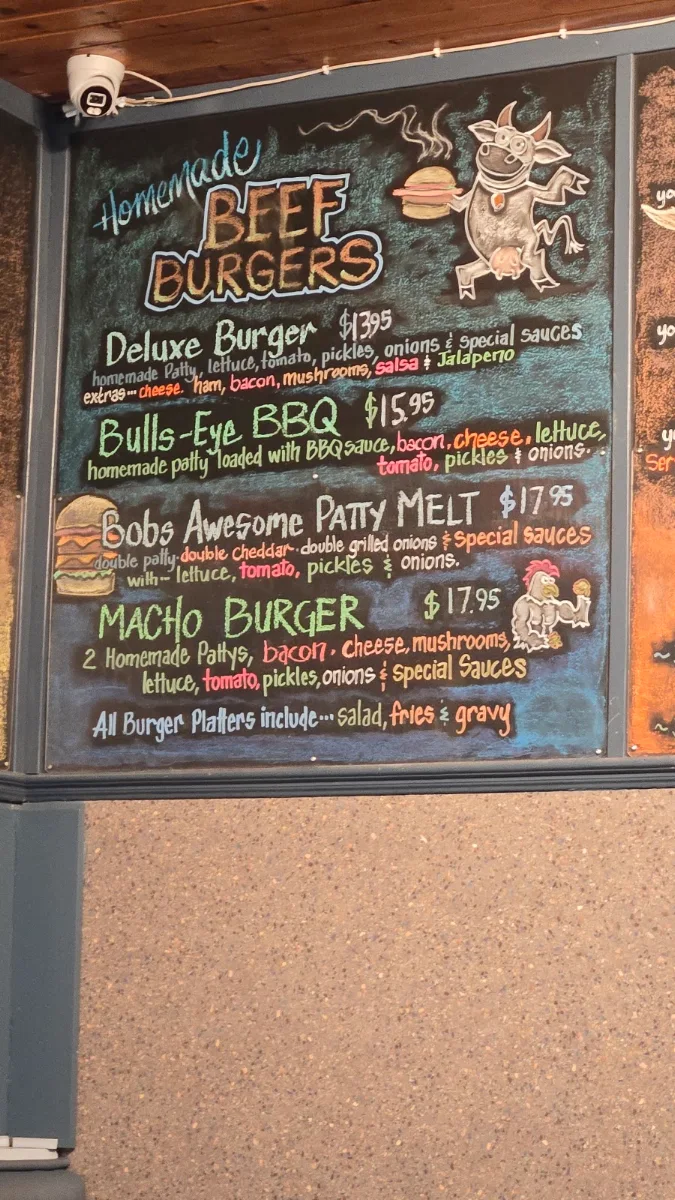 Homemade
BEEF
BURGERS
Deluxe Burger $13.95
homemade Patty, lettuce, tomato, pickles, onions & special sauces
extras... cheese, ham, bacon, mushrooms, salsa & Jalapeno
Bulls-Eye BBQ $15.95
homemade patty loaded with BBQ sauce, bacon, cheese, lettuce,
tomato, pickles & onions.
Bobs Awesome Patty MELT $17.95
double patty double cheddar double grilled onions & special sauces
with - lettuce, tomato, pickles & onions.
MACHO BURGER $17.95
2 Homemade Pattys, bacon, cheese, mushrooms,
lettuce, tomato, pickles, onions & special Sauces
All Burger Platters include... salad, fries & gravy